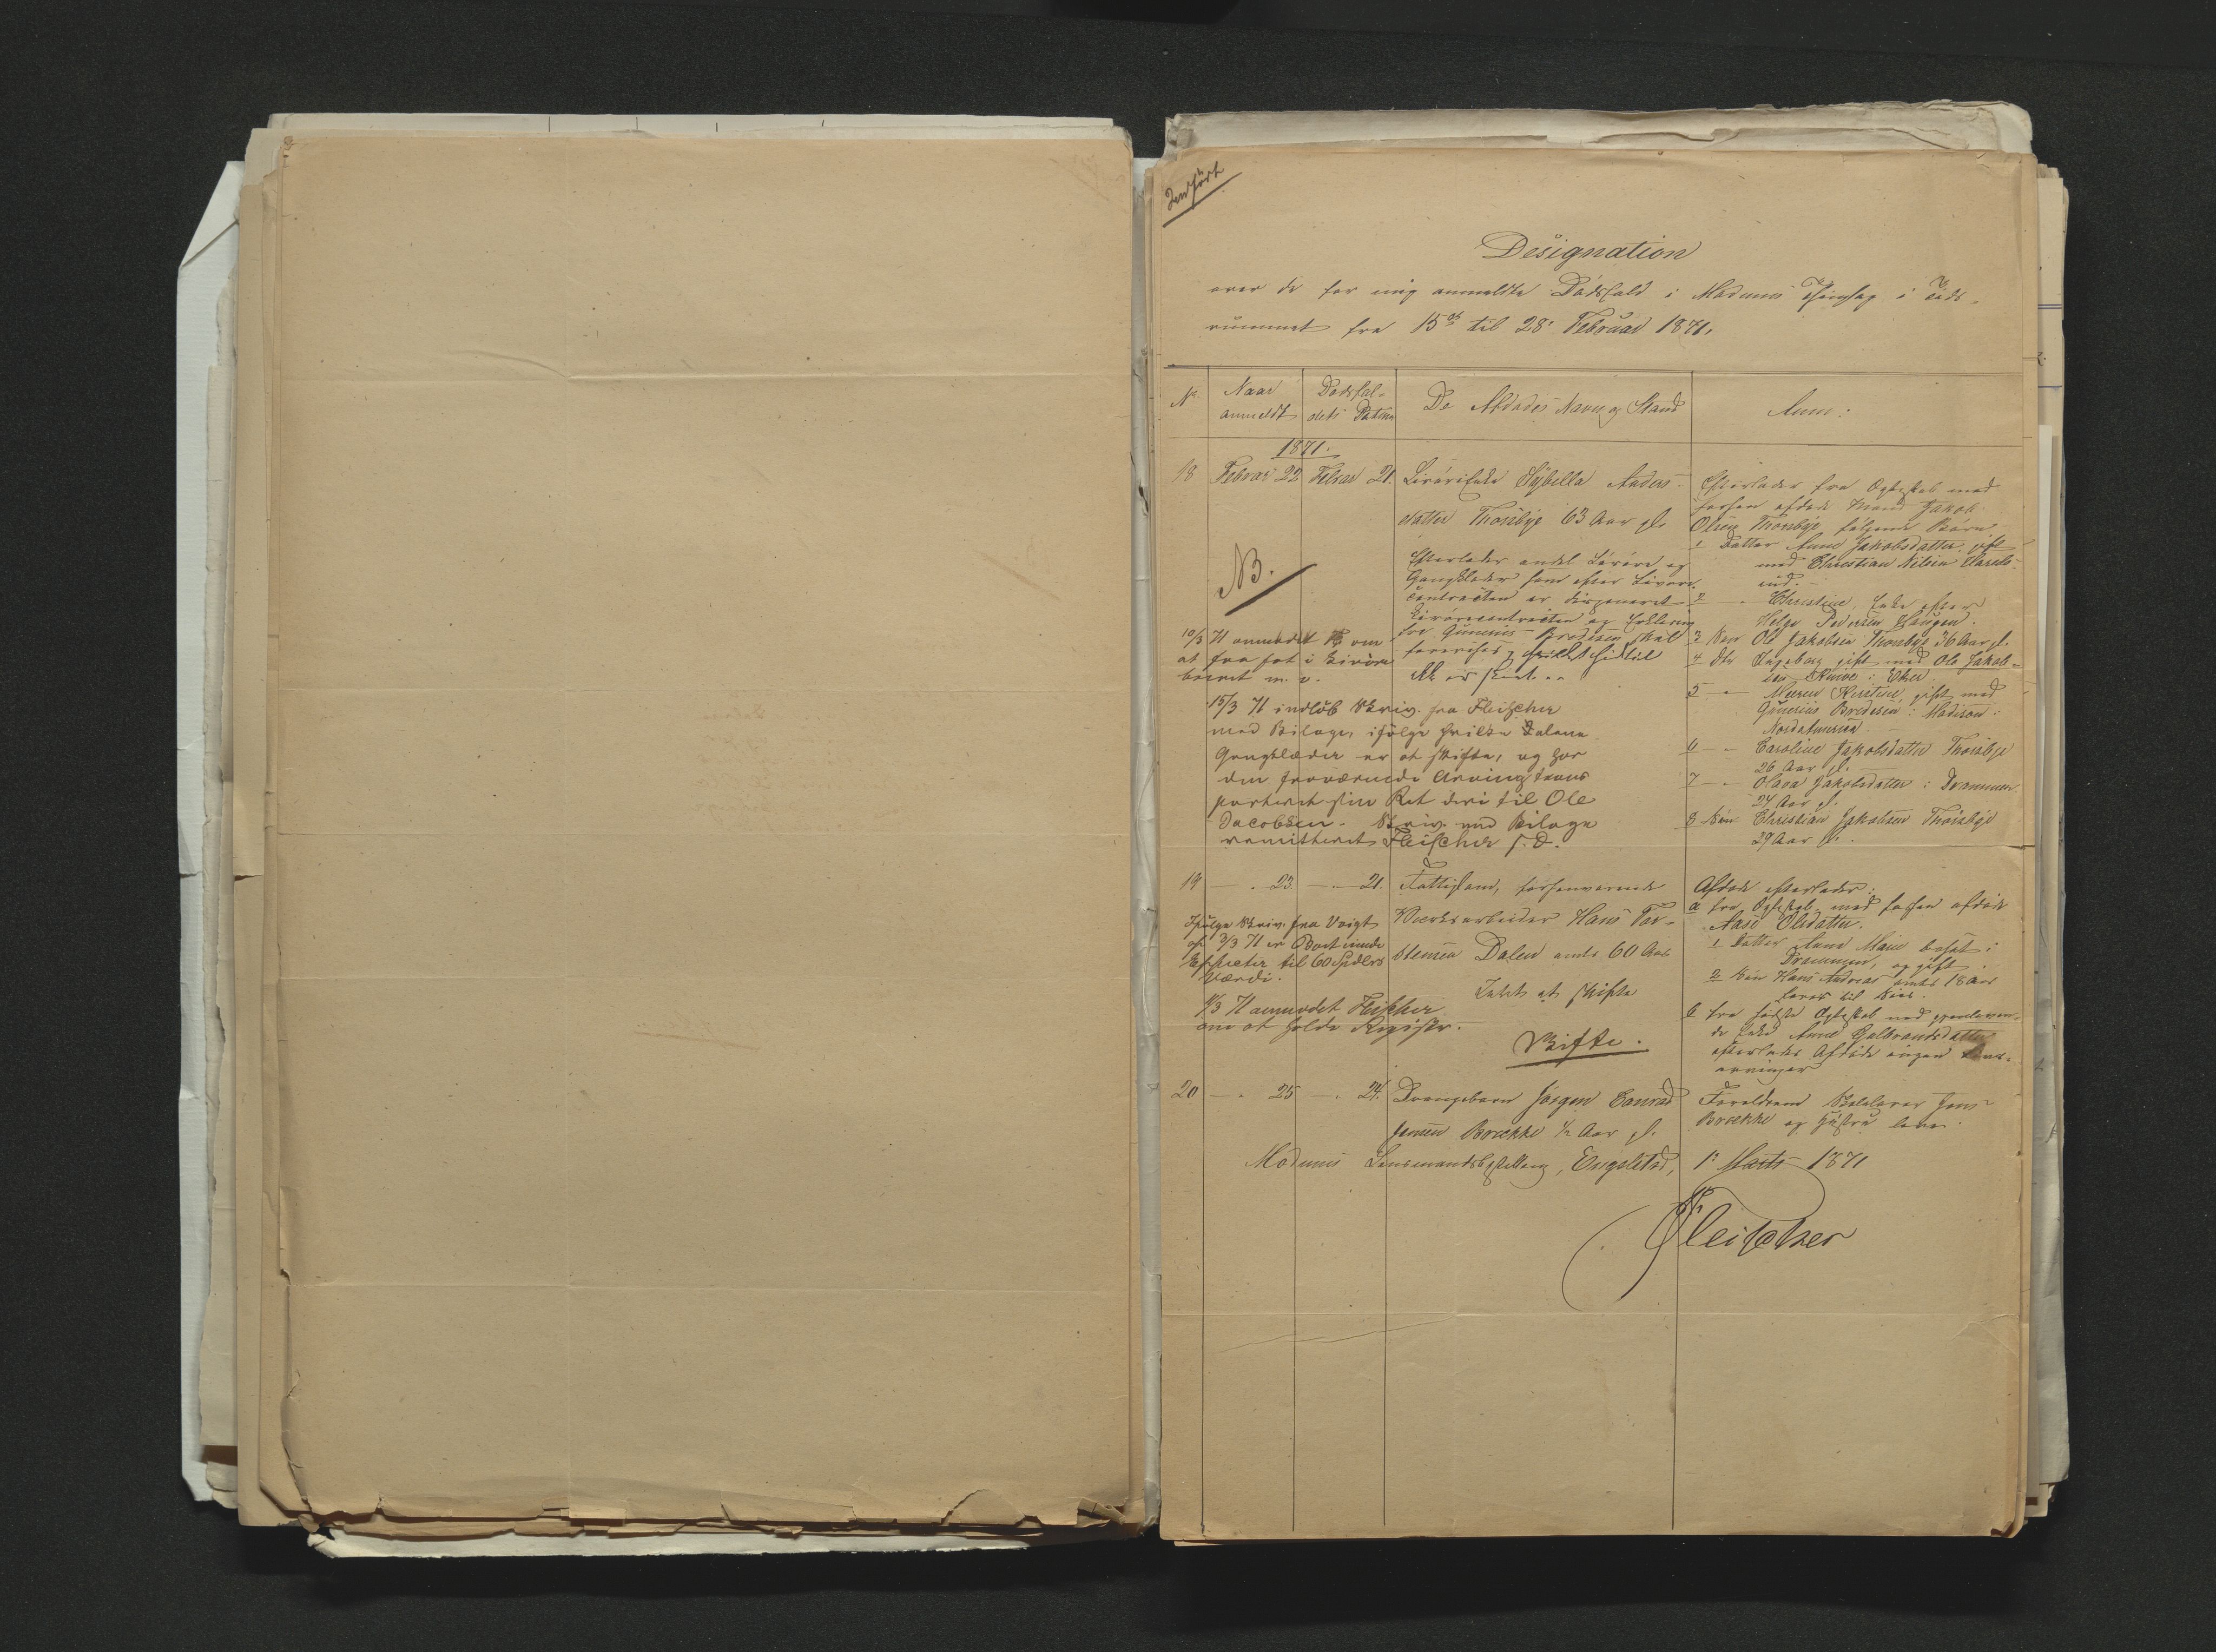 Indført
Designation
over de for mig anmeldte Dødsfald i Modums Thinglag i Tids-
rummet fra 15de til 28. Februar 1871.
No.
Naar
anmeldt
Dødsfal-
dets Datum
De Afdødes Navn og Stand
Anm:
1871.
18 Februar 22 Februar 21. Livørsenke Sybilla Anders-
datter Thorsbye 63 Aar gl.
Efterlader andel Livøre og
Gangklæder som efter Livøre-
contracten er disponeret
Livørecontracten og Erklæring
fra Gunerius Bredesen skal
forevises
NB.
10/3 71 anmodet om
at
m. v.
15/3 71 indløb Skriv. fra Fleischer
med Bilage, ifølge hvilke
Gangklæder er at skifte, og har
den fraværende Arving trans
porteret sin Ret deri til Ole
Jacobsen. Skriv. med Bilage
remitteret Fleischer s. D.
Efterlader fra Ægteskab med
forhen afdøde Mand Jakob
Olsen Thorsbye følgende Børn
1 Datter Anne Jakobsdatter gift
med Christian Nilsen
2 — Christine, Enke efter
Helge Pedersen Haugen.
3 Søn Ole Jakobsen Thorsbye 36 Aar gl.
4 Dtr Ingeborg gift med Ole Jakob-
sen : Eker
5 — Maren Kirstine, gift med
Gunerius Bredesen i Madison i
Nordamerica
6 — Caroline Jakobsdatter Thorsbye
26 Aar gl.
7 — Olava Jakobsdatter i Drammen
24 Aar gl.
8 Søn Christian Jakobsen Thorsbye
29 Aar gl.
19 — . 23. — . 21. Fattiglem, forhenværende
Værksarbeider Hans Tor-
stensen Dalen omtr 60 Aar
Intet at skifte
Skifte.
Ifølge Skriv. fra Voigt
af 3/3 71 er Boet
Effecter til 60 Spdlrs
Værdi.
71 anmodet Fleischer
om at holde Registr.
Afdøde efterlader:
a fra Ægteskab med forhen afdøde
Aase Olsdatter.
1 Datter Anne Marie bosat i
Drammen, og gift
2 Søn Hans Andreas omtr 18 Aar
farer til Søes.
b fra sidste Ægteskab med gjenleven-
de Enke Anne Gulbrandsdatter
efterlader Afdøde ingen Livs-
arvinger
20 — . 25 — . 24. Drengebarn Jørgen Conrad
Jensen Brække ½ Aar gl.
Forældrene Skolelærer Jens
Brække og Hustru lever.
Modums Lensmandsbestilling, Engelstad, 1. Marts 1871
Fleischer